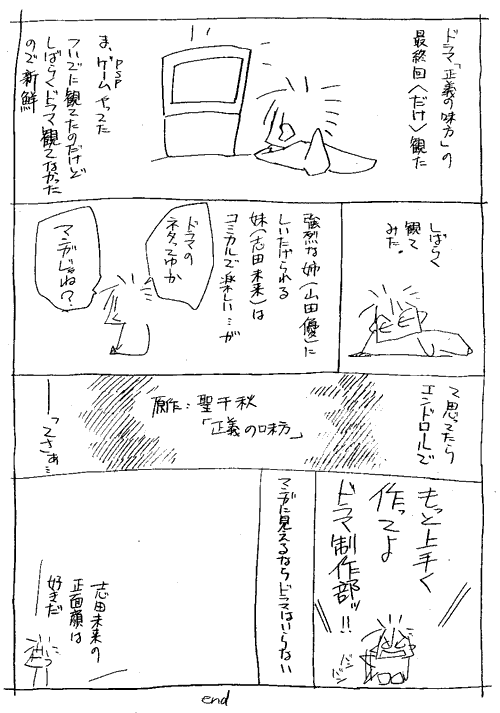 ドラマ「正義の味方」の
最終回〈だけ〉観た
ま、ゲームやってた
PSP
ついでに観てたのだけど
しばらくドラマ観てなかった
ので新鮮
しばらく
観て
みた。
強烈な姉(山田優)に
しいたげられる
妹(志田未来)は
コミカルで楽しい…が
ドラマの
ネタってゆか
マンガじゃね?
て思ってたら
エンドロールで
原作:聖千秋
「正義の味方」
――ってさぁ…
もっと上手く
作ってよ
ドラマ制作部ッ!!
バン
バン
マンガに見えるならドラマはいらない
志田未来の
正面顔は
好きだ
end